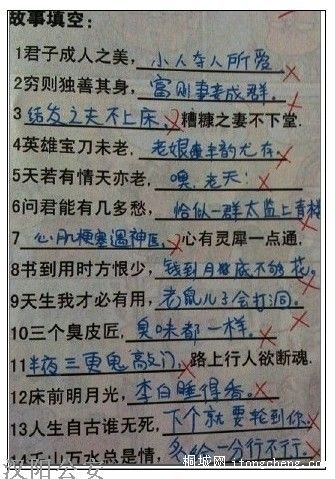 故事填空:
1君子成人之美, 小人夺人所爱
2穷则独善其身, 富则妻妾成群。
3 结发之夫不上床, 糟糠之妻不下堂.
4英雄宝刀未老, 老娘丰韵尤存。
5天若有情天亦老, 噢,老天!
6问君能有几多愁, 恰似一群太监上青楼
7 心肌梗塞遇神医, 心有灵犀一点通,
8书到用时方恨少, 钱到月底不够花。
9天生我才必有用, 老鼠儿子会打洞。
10三个臭皮匠, 臭味都一样。
11半夜三更鬼敲门, 路上行人欲断魂.
12床前明月光, 李白睡得香。
13人生自古谁无死, 下个就要轮到你。
14千山万水总是情, 多给一分行不行。
汉阳公安
桐城网 itongcheng.cc